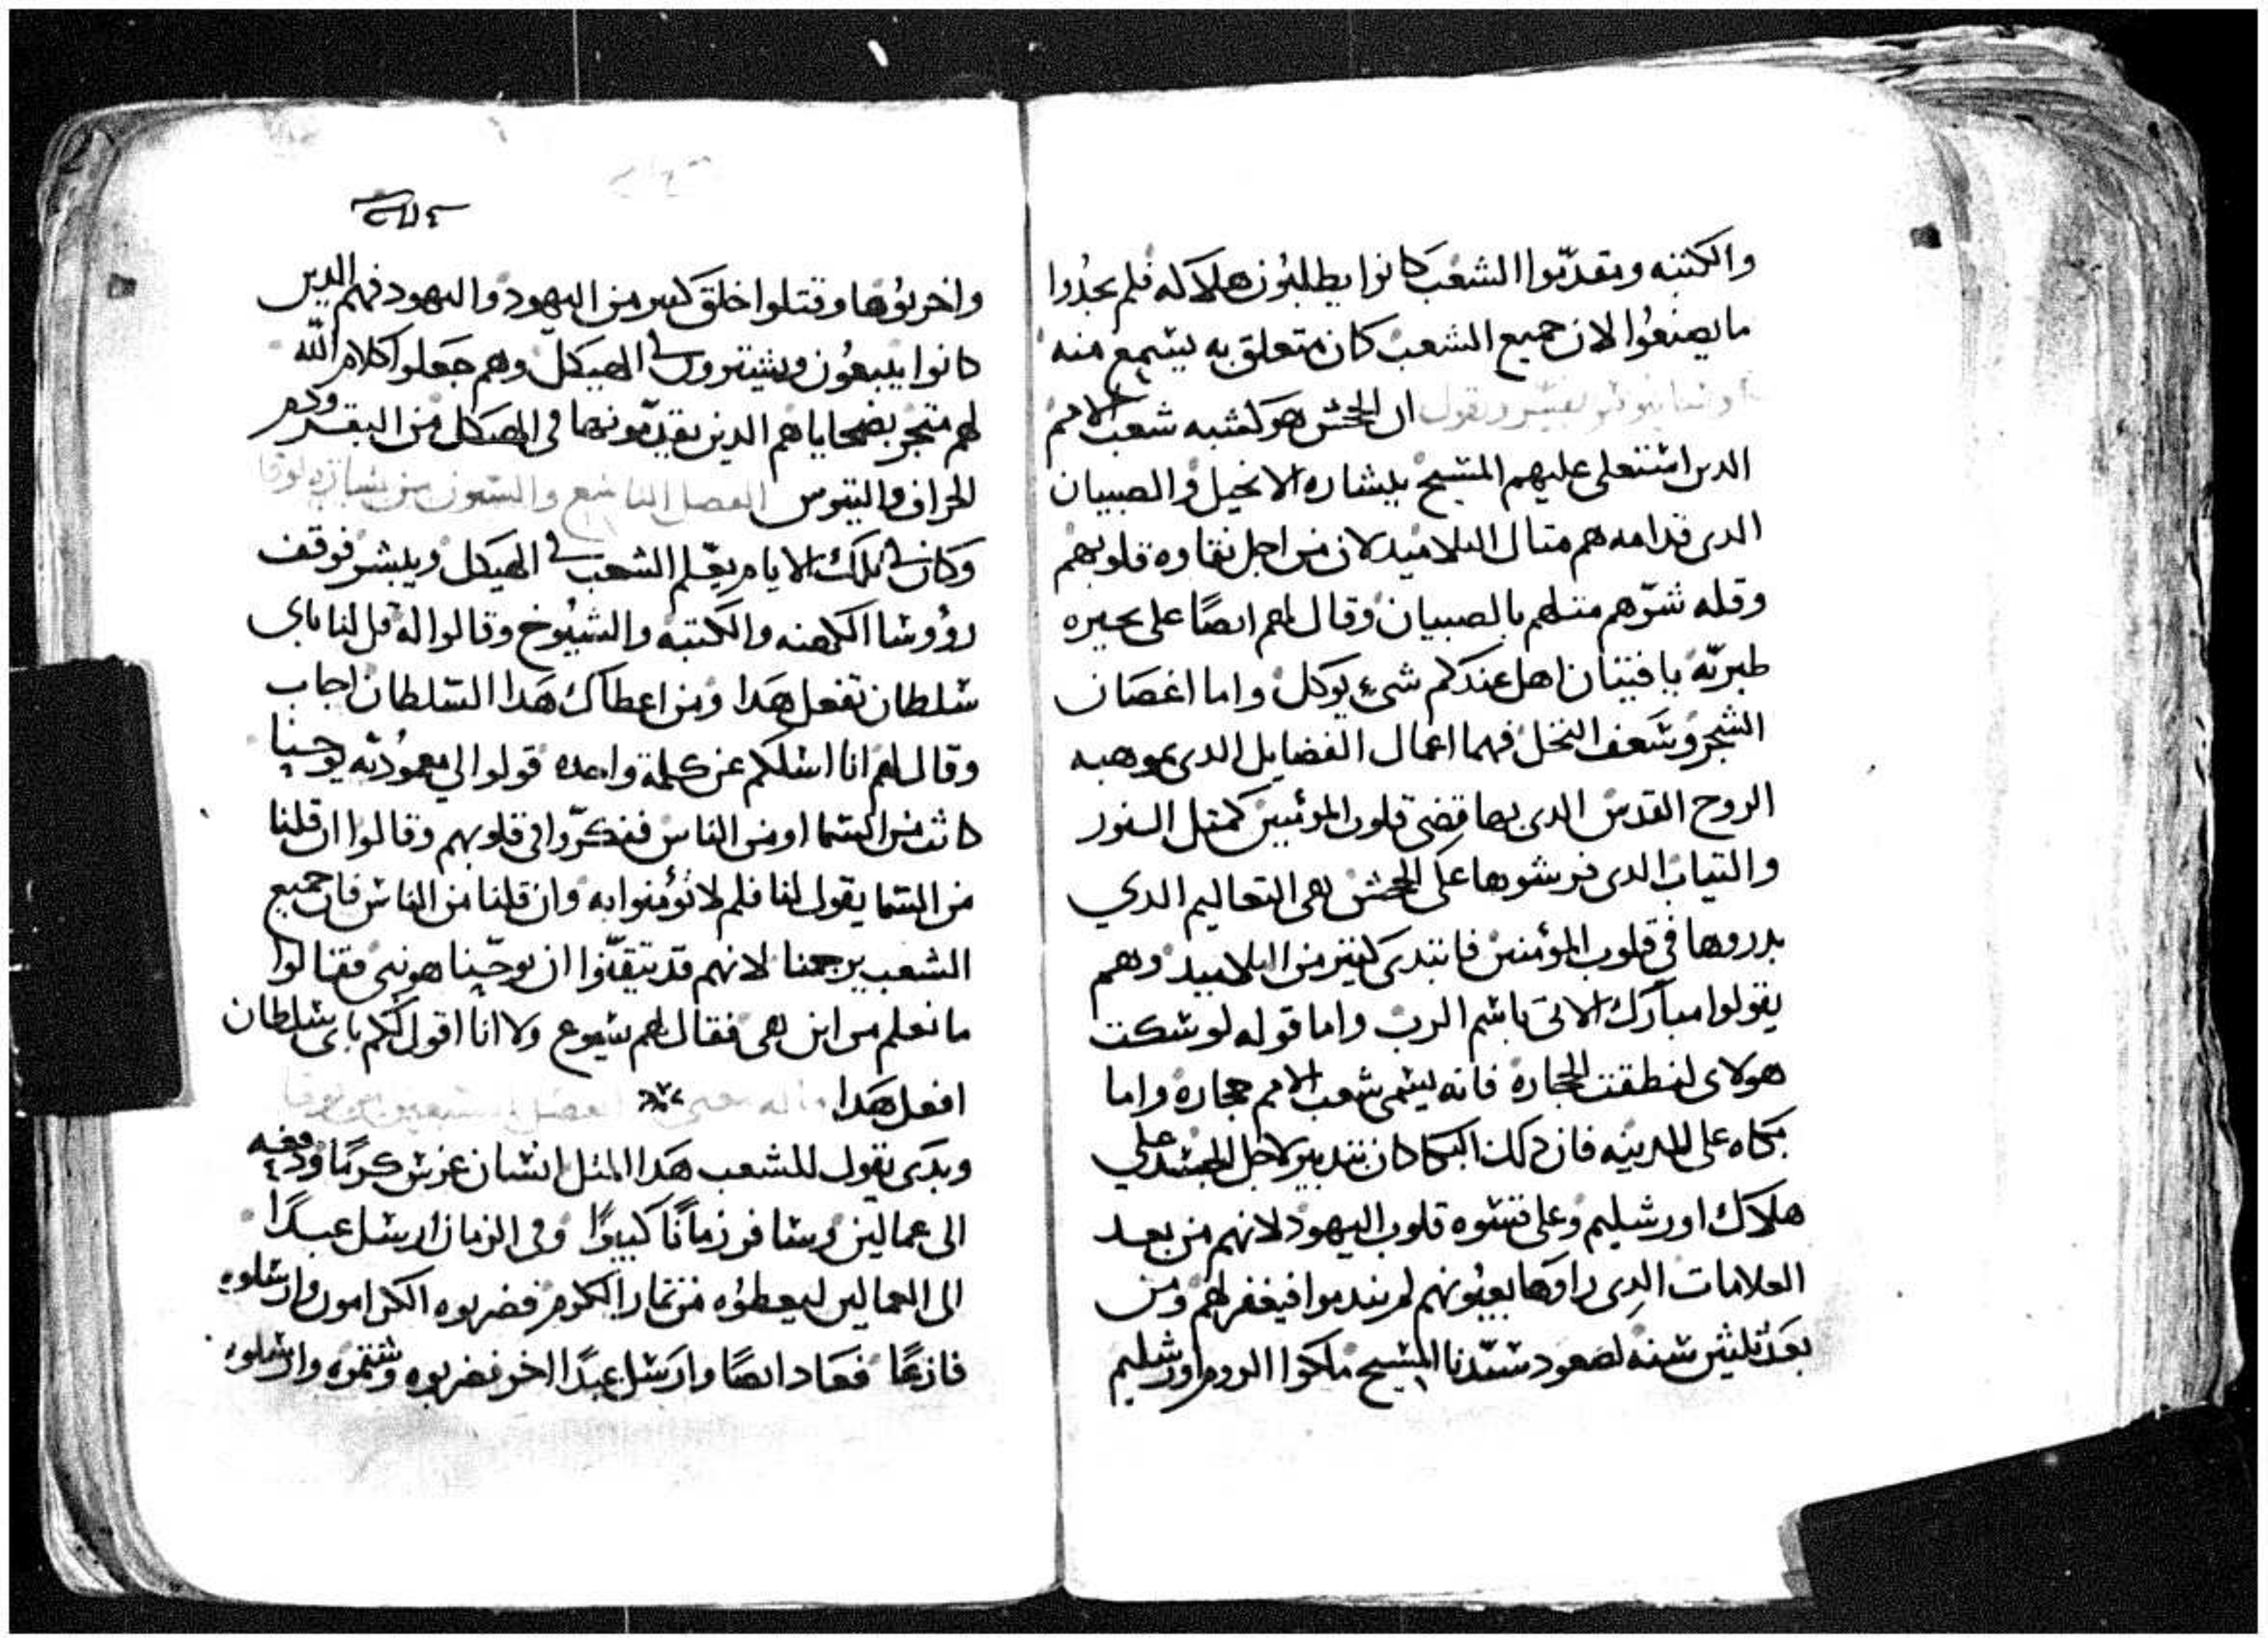 والكتبه ومقدّموا الشعب كانوا يطلبون هلاكه فلم يجدوا
ما يصنعوا لان جميع الشعب كان متعلق به يسمع منه
يفسر ويقول ان الجحش هو يشبه شعب الامم
الدين استعلى عليهم المسيح ببشاره الانجيل والصبيان
الدى قدامه هم متال التلاميد لان من اجل نقاوه قلوبهم
وقله شرّهم متلهم بالصبيان وقال لهم ايضًا على بحيره
طبريّه يا فتيان اهل عندكم شىء يوكل واما اغصان
الشجر وسعف النخل فهما اعمال الفضايل الدى بموهبه
الروح القدس الدى بها قضى قلوب المؤمنين كمتل النور
والتياب الدى فرشوها على الجحش هى التعاليم الدي
بدروها في قلوب المؤمنين فابتدى كتير من التلاميد وهم
يقولوا مبارك الاتى باسم الرب واما قوله لو سكت
هولاى لنطقت الحجاره فانه يسمى شعب الامم حجاره واما
بكاه على المدينه فان دلك البكا كان بتدبير لاجل الجسد على
هلاك اورشليم وعلى قسوه قلوب اليهود لانهم من بعد
العلامات الدى راوها بعيونهم لم يندموا فيغفر لهم ومن
بعد تلتين سنه لصعود سيّدنا المسيح ملكوا الروم اورشليم
واخربوها وقتلوا خلق كتير من اليهود واليهود فهم الدين
كانوا يبيعون ويشترون في الهيكل وهم جعلوا كلام الله
لهم متجر بضحاياهم الدين يقدّمونها في الهيكل من البقر
الخراف والتيوس الفصل التاسع والستون من بشاره لوقا
وكان في تلك الايام يعلّم الشعب في الهيكل ويبشر فوقف
رؤوسا الكهنه والكتبه والشيوخ وقالوا له قل لنا باى
سلطان تفعل هدا ومن اعطاك هدا السلطان اجاب
وقال لهم انا اسلكم عن كلمة واحده قولوا لي معموديّه يوحنا
كانت من السما او من الناس ففكرّوا في قلوبهم وقالوا ان قلنا
من السما يقول لنا فلم لا تؤمنوا به وان قلنا من الناس فان جميع
الشعب يرجمنا لانهم قد تيقّنوا ان يوحنّا هو نبى فقالوا
ما نعلم من اين هى فقال لهم يسوع ولا انا اقول لكم باى سلطان
افعل هدا الفصل السبعين من لوقا
وبدى يقول للشعب هدا المتل انسان غرس كرمًا ودفعه
الى عمالين وسافر زمانًا كبيرًا وفى الزمان ارسل عبدًا
الى العمالين ليعطوه من تمار الكرم فضربوه الكرامون وارسلوه
فازغًا فعاد ايضًا وارسل عبدًا اخر فضربوه وشتموه وارسلوه